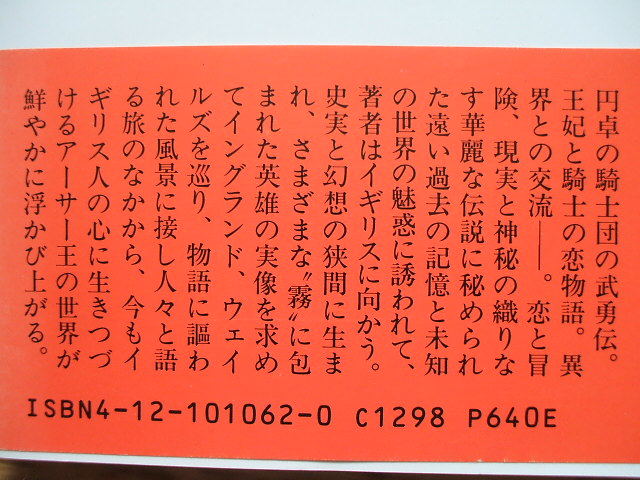 円卓の騎士団の武勇伝。
王妃と騎士の恋物語。異
界との交流――。恋と冒
険、現実と神秘の織りな
す華麗な伝説に秘められ
た遠い過去の記憶と未知
の世界の魅惑に誘われて、
著者はイギリスに向かう。
史実と幻想の狭間に生ま
れ、さまざまな〝霧〟に包
まれた英雄の実像を求め
てイングランド、ウェイ
ルズを巡り、物語に謳わ
れた風景に接し人々と語
る旅のなかから、今もイ
ギリス人の心に生きつづ
けるアーサー王の世界が
鮮やかに浮かび上がる。
ISBN4-12-101062-0 C1298 P640E